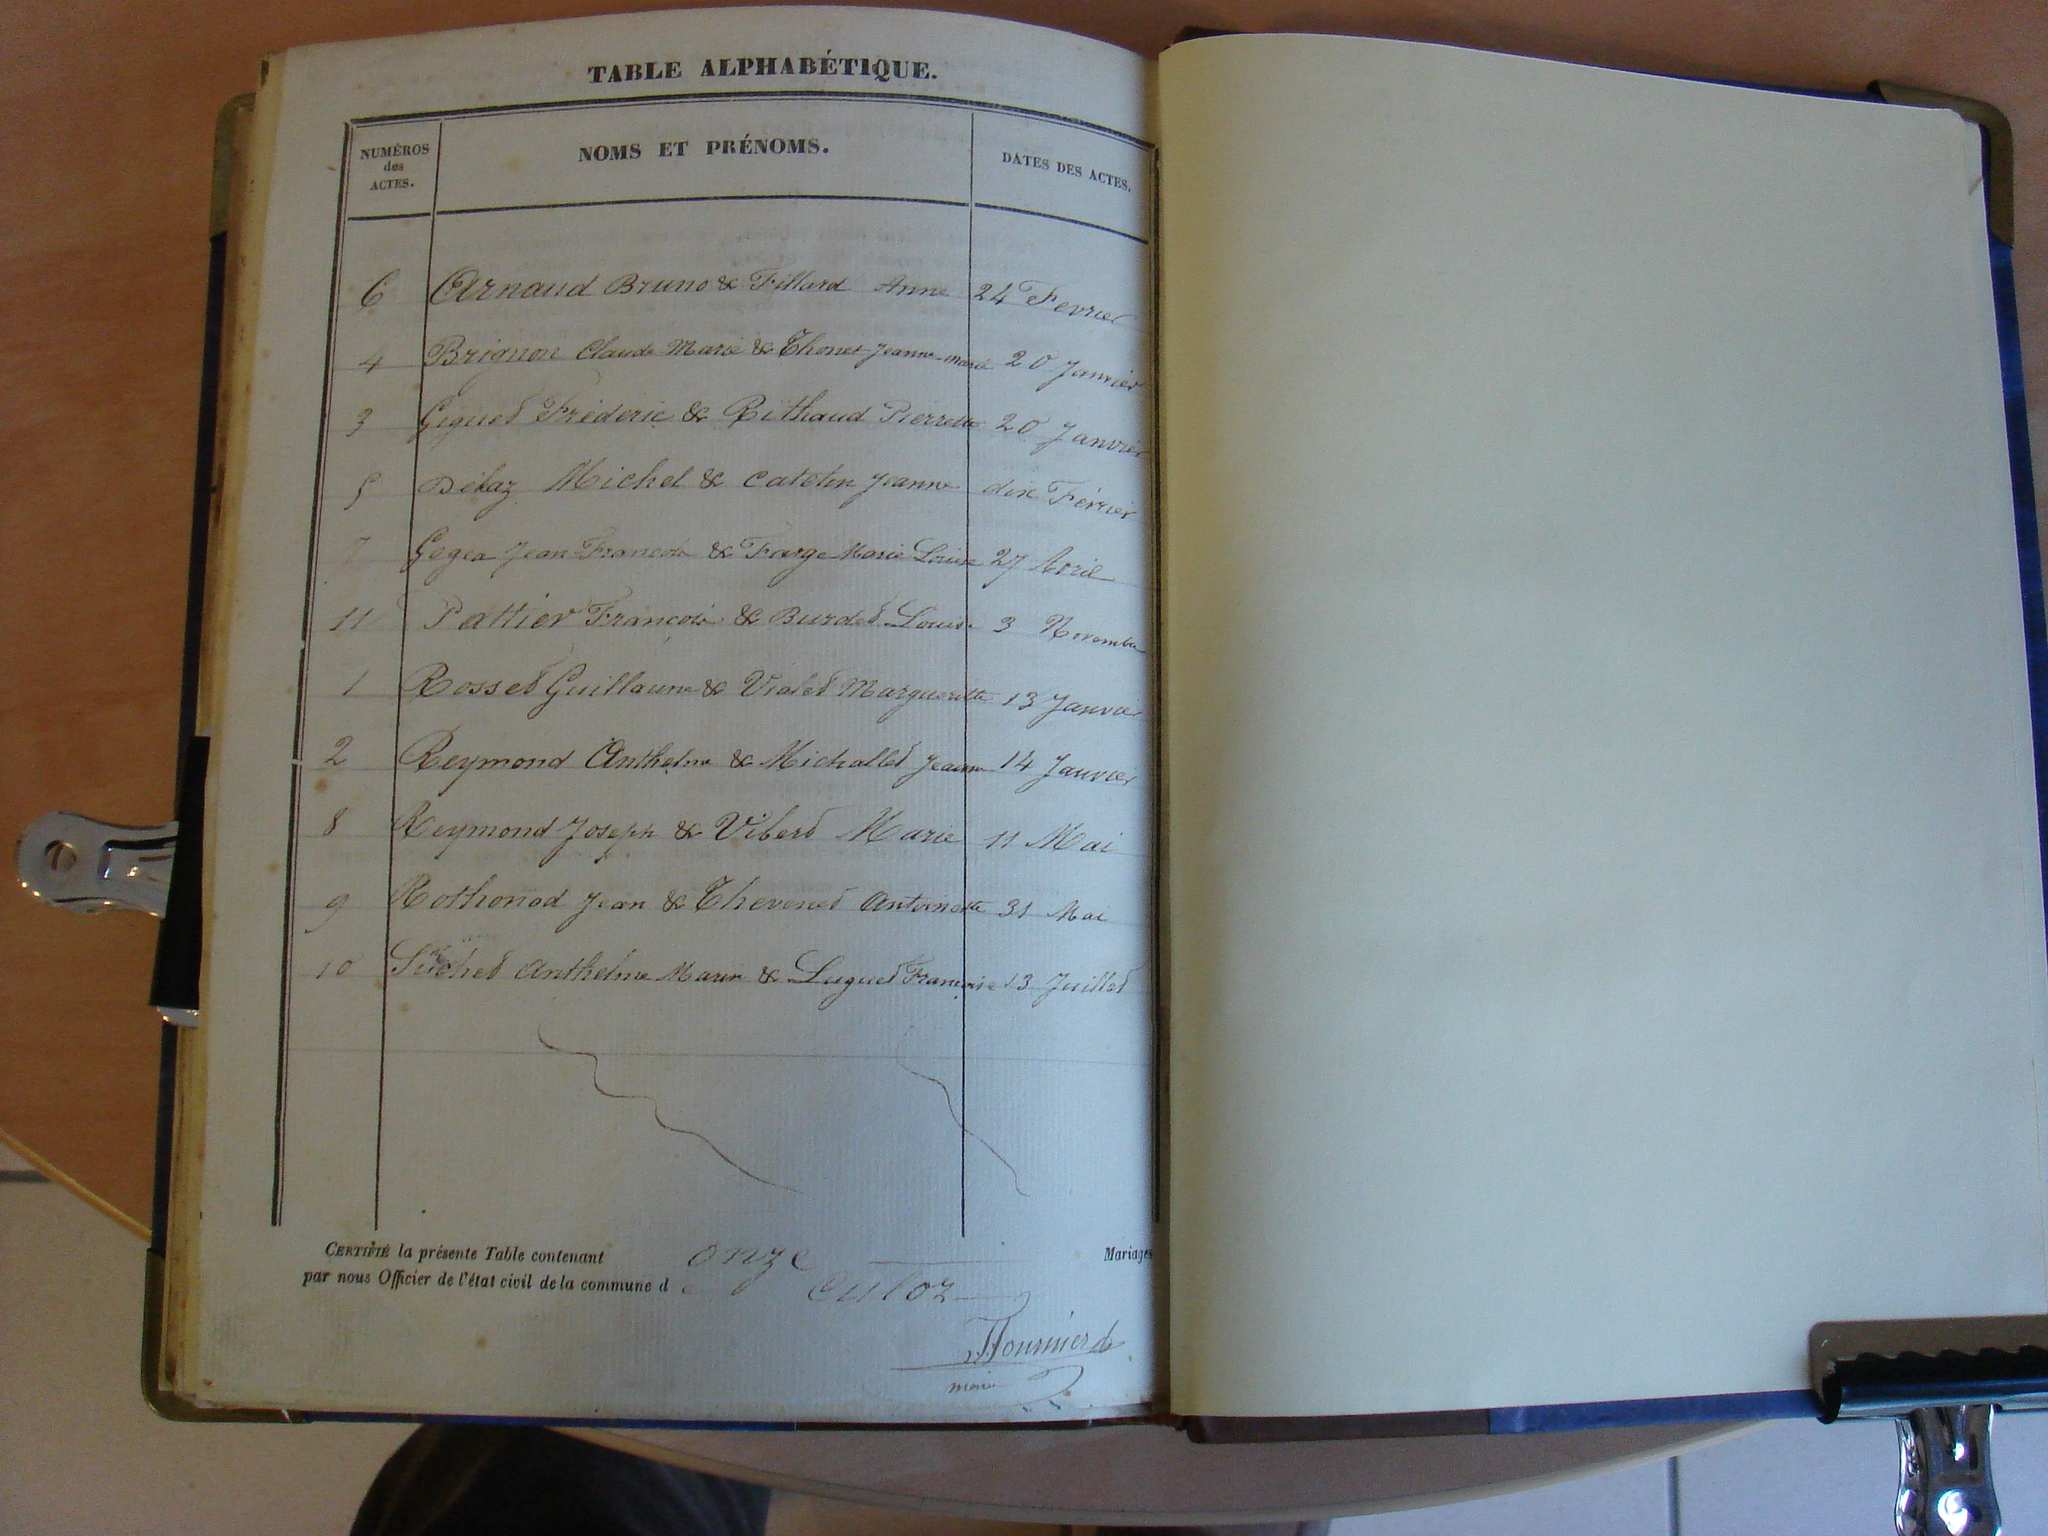 TABLE ALPHABÉTIQUE.
NUMÉROS des ACTES. NOMS ET PRÉNOMS. DATES DES ACTES.
6 Arnaud Bruno & Fillard Anne 24 Fevrier
4 Brignon Claude Marie & Thonet Jeanne-Marie 20 Janvier
3 Giguet Fréderic & Rithaud Pierrette 20 Janvier
5 Michel & Catelin Jeanne dix Février
7 Jean François & Farge Marie Louise 27 Avril
11 Pattier François & Burdet Louise 3 Novembre
1 Rosset Guillaume & Violet Marguerite 13 Janvier
2 Reymond Anthelme & Michallet Jeanne 14 Janvier
8 Reymond Joseph & Vibert Marie 11 Mai
9 Rothonod Jean & Thevenet Antoinette 31 Mai
10 Suchet Anthelme Marin & Luguet Françoise 13 Juillet
CERTIFIÉ la présente Table contenant onze Mariages
par nous Officier de l'état civil de la commune de Culoz
maire